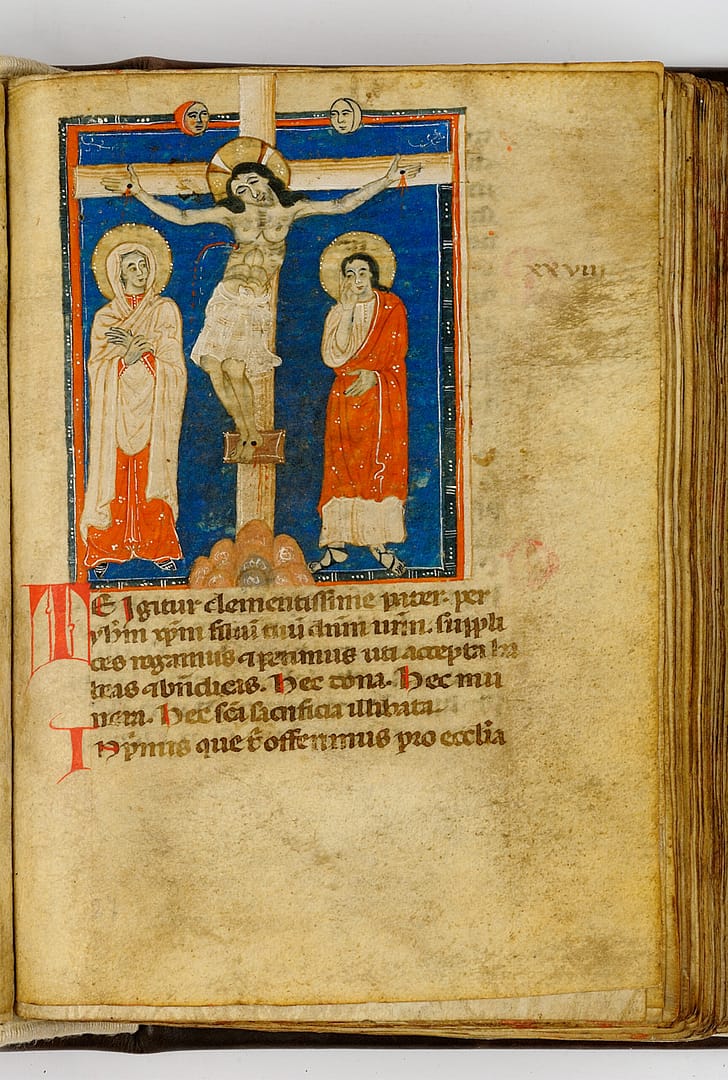 xxviii
TE Igitur clementissime pater. per
yhm xpm filiu tuu dnm nrm. suppli
ces rogamus ⁊ petimus uti accepta ha
beas ⁊ bndicas. Hec dona. Hec mu
nera. Hec sca sacrificia illibata.
Inpmis que t offerimus pro ecclia